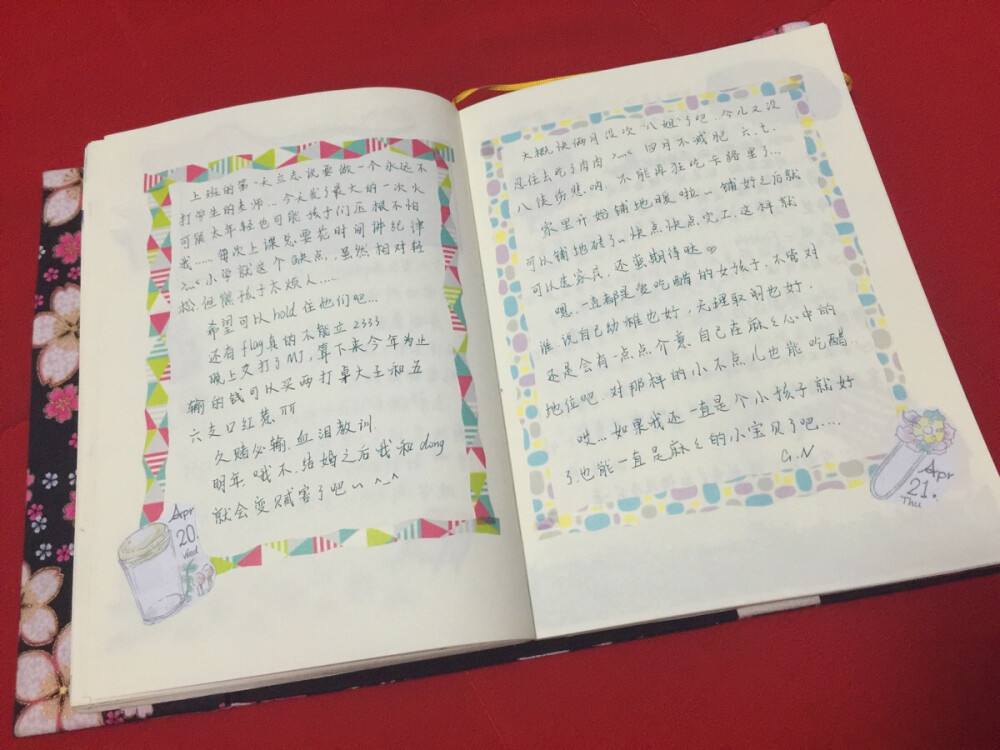 上班的第一天立志说要做一个永远不
打学生的老师...今天发了最大的一次火
可能太年轻也可能孩子们压根不怕
我.....每次上课总要花时间讲纪律
小学就这个缺点,虽然相对轻
松,但熊孩子太烦人.....
希望可以hold住他们吧...
还有flag真的不能立2333
晚上又打了MJ,算下来今年为止
输的钱可以买两打桌大王和五
六支口红惹 TTT
久赌必输,血泪教训.
明年哦不,结婚之后我和dong
就会变厉害了吧~ ^_^
Apr
20.
Wed
大概快俩月没次"八姐"了吧.今儿又没
忍住去吃了肉肉 四月不减肥 六.七.
八徒伤悲呐,不能再狂吃卡路里了...
家里开始铺地暖啦~铺好之后就
可以铺地砖了~快点快点完工,这样就
可以进家具,还蛮期待哒
嗯,一直都是爱吃醋的女孩子,不管对
谁.说自己幼稚也好,无理取闹也好.
还是会有一点点介意自己在麻麻心中的
地位吧.对那样的小不点儿也能吃醋.
哎...如果我还一直是个小孩子就好
了也能一直是麻麻的小宝贝了吧....
G.N
Apr
21.
Thu